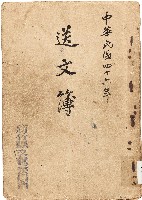 中華民國四十六年
送文簿